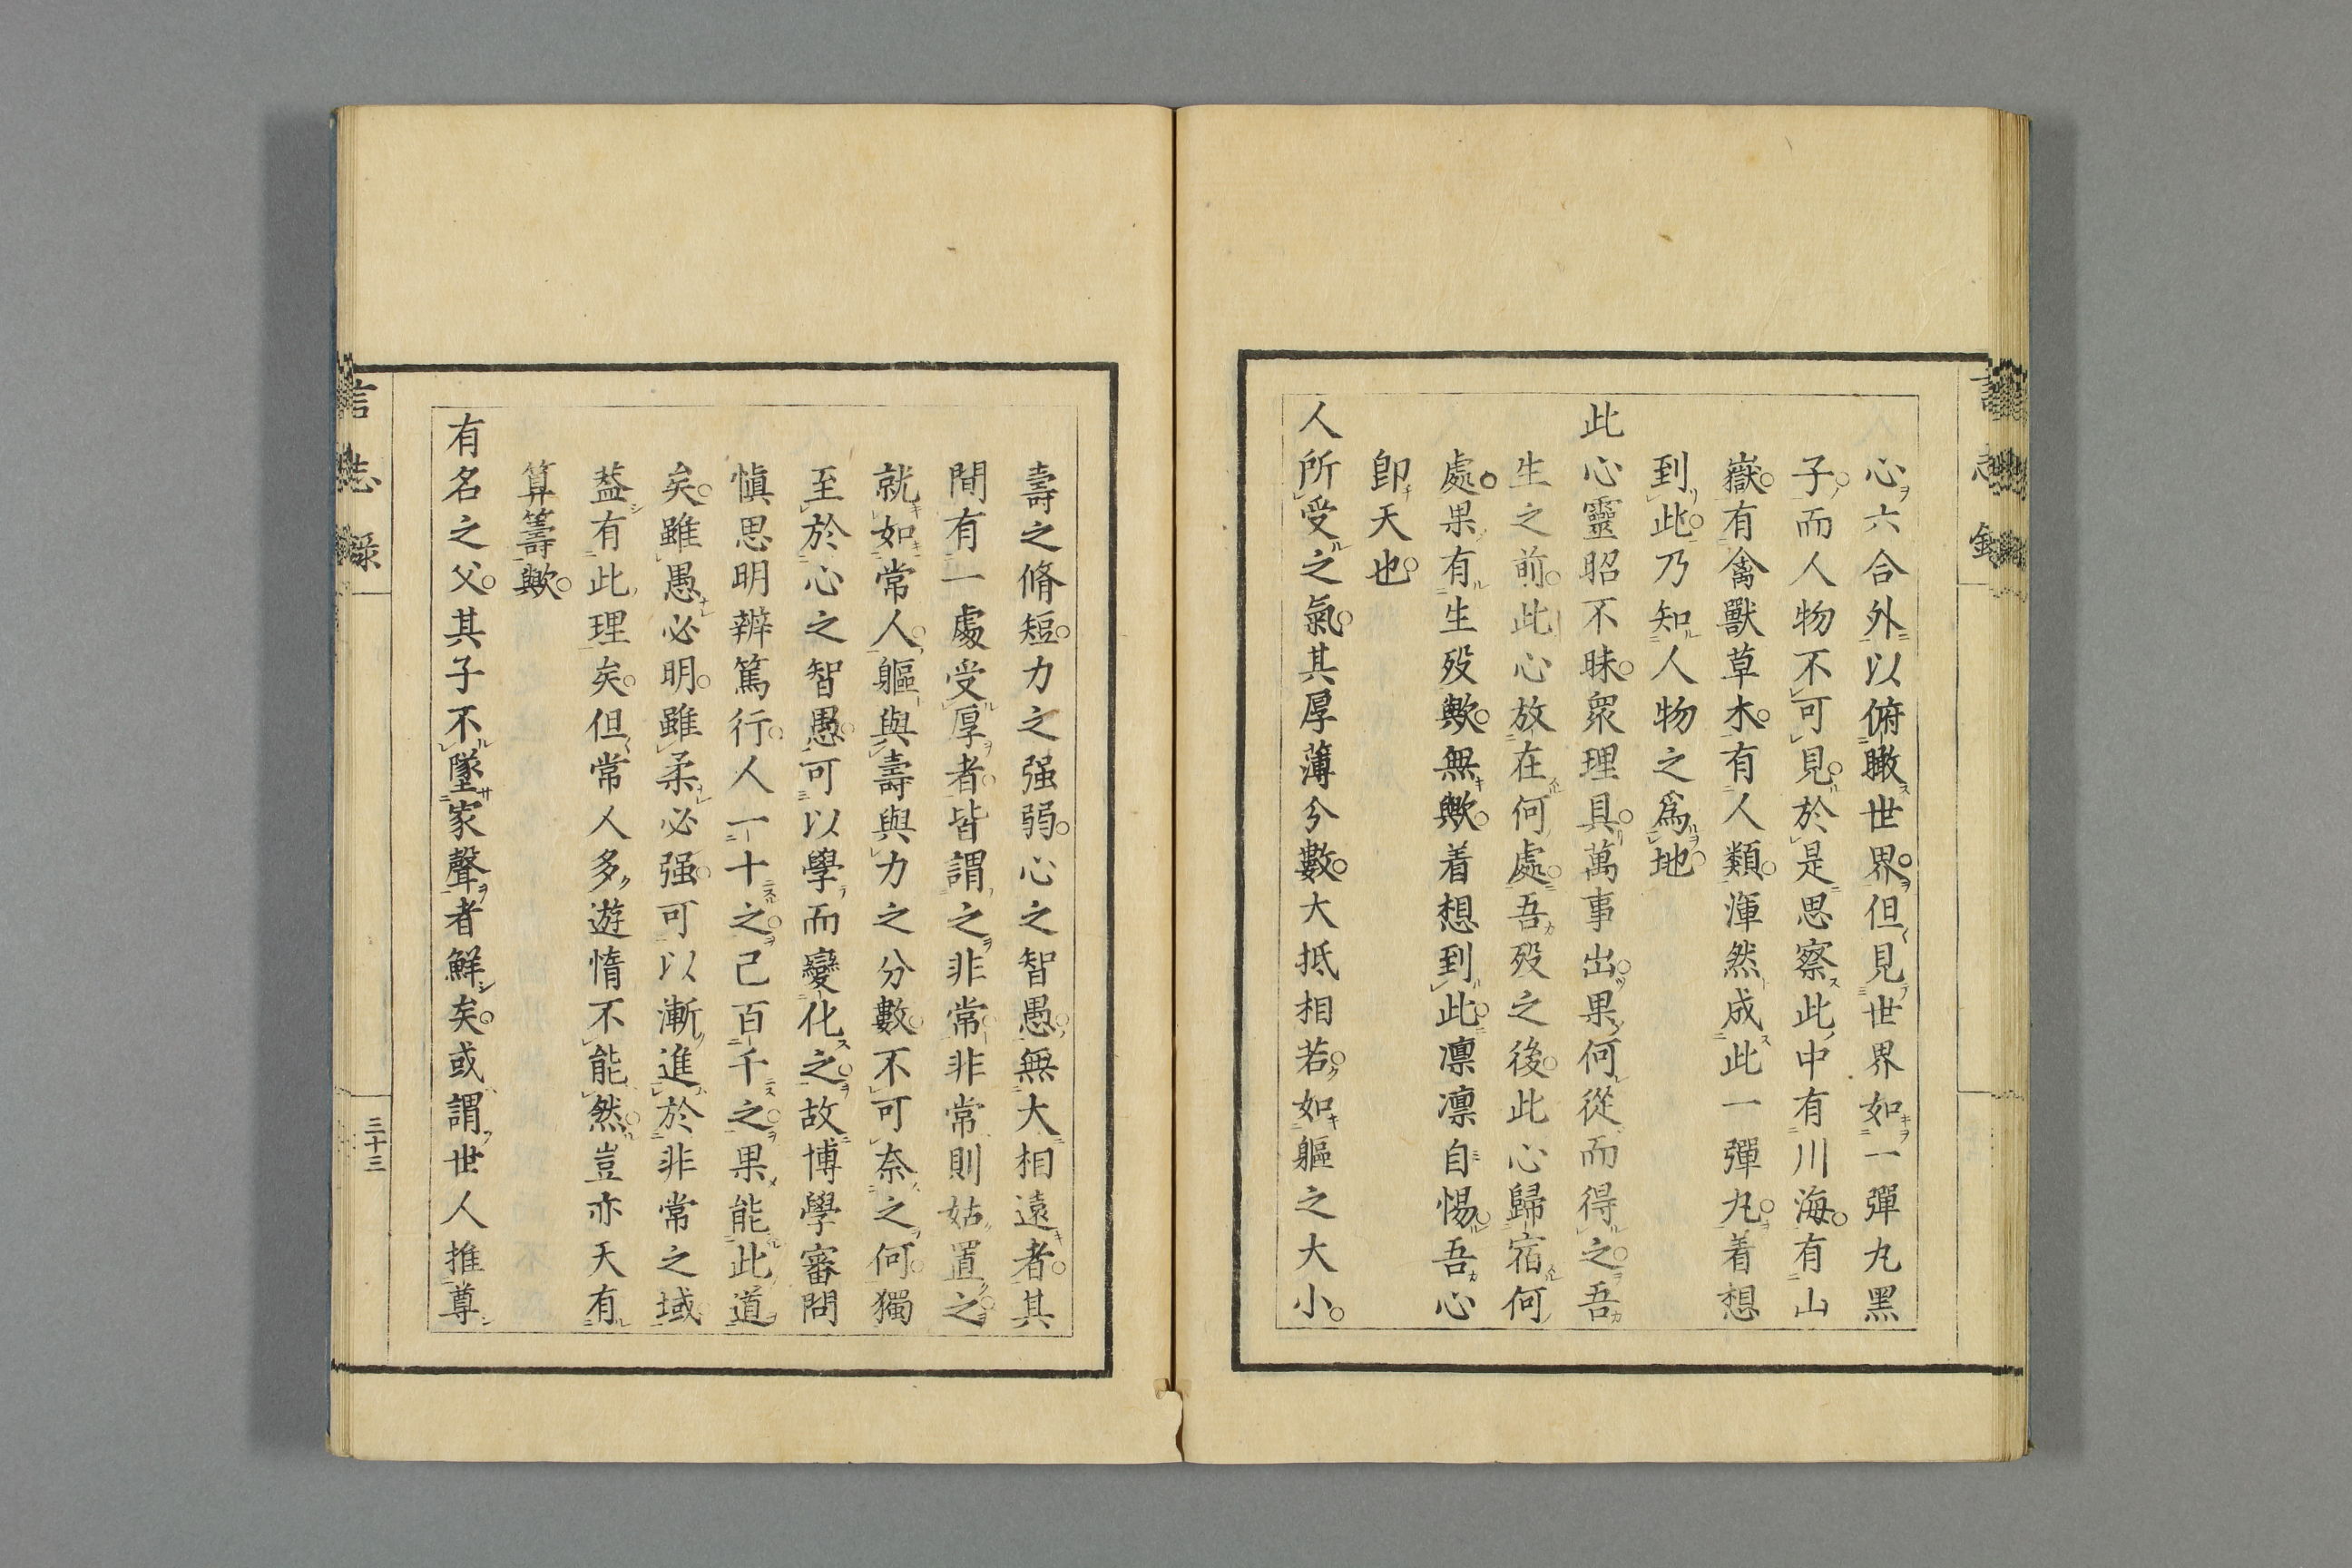 心六合外以俯瞰世界但見世界如一彈丸黑
子而人物不可見於是思察此中有川海有山
嶽有禽獸草木有人類渾然成此一彈丸着想
到此乃知人物之爲地
此心靈昭不昧衆理具萬事出果何從而得之吾
生之前此心放在何處吾歿之後此心歸宿何
處果有生歿歟無歟着想到此凛凛自惕吾心
卽天也
人所受之氣其厚薄分數大抵相若如軀之大小
壽之脩短力之强弱心之智愚無大相遠者其
間有一處受厚者皆謂之非常非常則姑置之
就如常人軀與壽與力之分數不可奈之何獨
至於心之智愚可以學而變化之故博學審問
愼思明辨篤行人一十之己百千之果能此道
矣雖愚必明雖柔必强可以漸進於非常之域
葢有此理矣但常人多遊惰不能然豈亦天有
算籌歟
有名之父其子不墜家聲者鮮矣或謂世人推尊
言志録
三十三